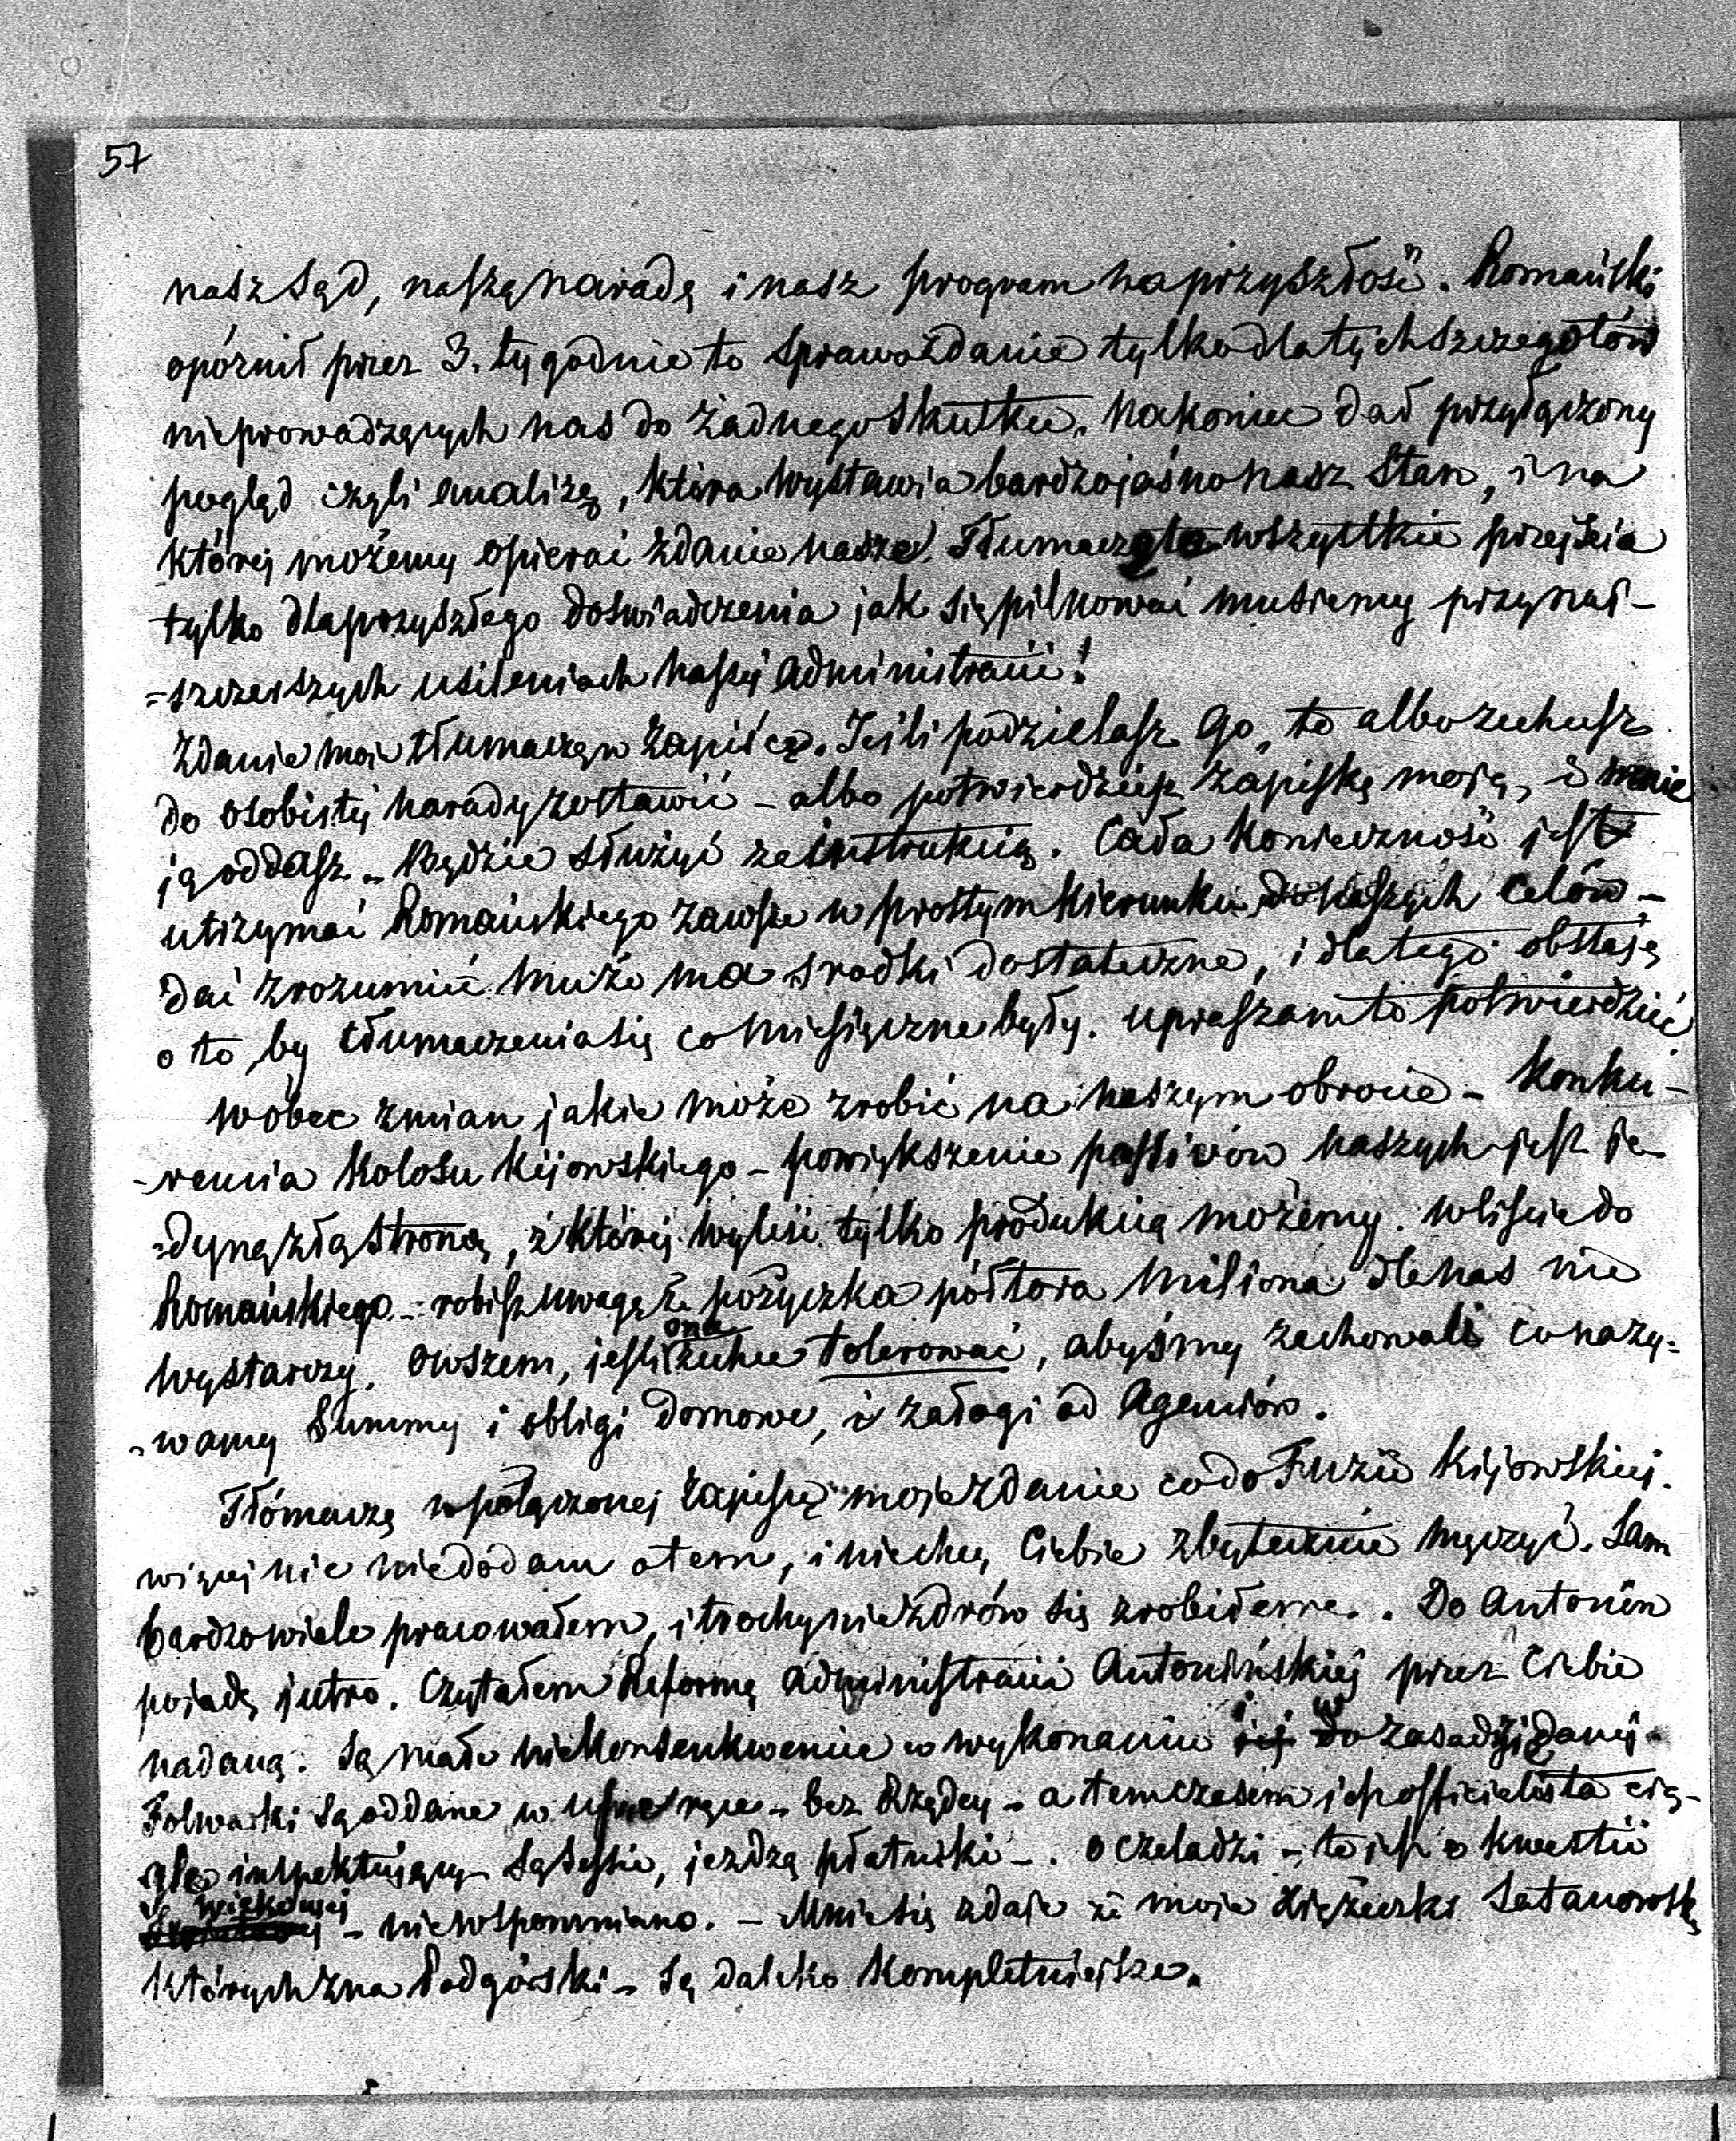 57
nasz sąd, naszą naradę i nasz program na przyszłość. Romański
opóźnił przez 3. tygodnie to sprawozdanie tylko dla tych szczegółów
nieprowadzących nas do żadnego skutku. Nakoniec dał przyłączony
pogląd czyli analizę, która wystawia bardzo jasno nasz stan, i na
której możemy opierać zdanie nasze. Tłumaczę to wszystkie przejścia
tylko dla przyszłego doswiadczenia jak się pilnować musiemy przy naj-
=szczerszych usileniach naszéj administracii!
Zdanie moie tłumaczę w zapiscę. Jeśli podzielasz go, to albo zechcesz
do osobistéj narady zostawić – albo potwierdzisz zapiskę moją, i mnie
ją oddasz. – Będzie służyć za instrukcią. Cała konieczność jest
utrzymać Romańskiego zawsze w prostym kierunku do naszych celów –
dać zrozumieć mu że ma srodki dostateczne, i dlatego obstaję
o to, by tłumaczenia się co miesięczne były. Upraszam to potwierdzić
Wobec zmian jakie może zrobić na naszym obrocie – konku-
-rencia Kolosu Kijowskiego – powiększenie passivów naszych jest je-
=dyną złą stroną, z któréj wyleść tylko produkcią możemy. W liście do
Romańskiego – robisz uwagę że pożyczka półtora miliona dla nas nie
wystarczy. Owszem, jeśli ona zechce tolerować, abyśmy zachowali co nazy=
-wamy Summy i obligi domowe, i załogi od Agentów.
Tłómaczę w połączonej zapiscę moje zdanie co do Fuzii Kijowskiej.
więcej nic niedodam o tem, i niechcę Ciebie zbytecznie męczyć. Sam
bardzo wiele pracowałem, i trochę niezdrów się zrobiłem. . Do Antonin
pojadę jutro. Czytałem Reformę administracii Antonińskiej przez Ciebie
nadaną. Są małe niekonsenkwencie w wykonaniu i w zasadzie danéj.
Folwarki są oddane w ręce – bez Rządcy – a temczasem jest officialista cią-
gle inspektujący – są sessie, jezdzą płatniki –. o czeladzi – to jest o kwestii
wiekowej – niewspomniano. – Mnie się zdaje że moje książeczki Satanowskie
których zna Podgórski – są daleko kompletniejsze.